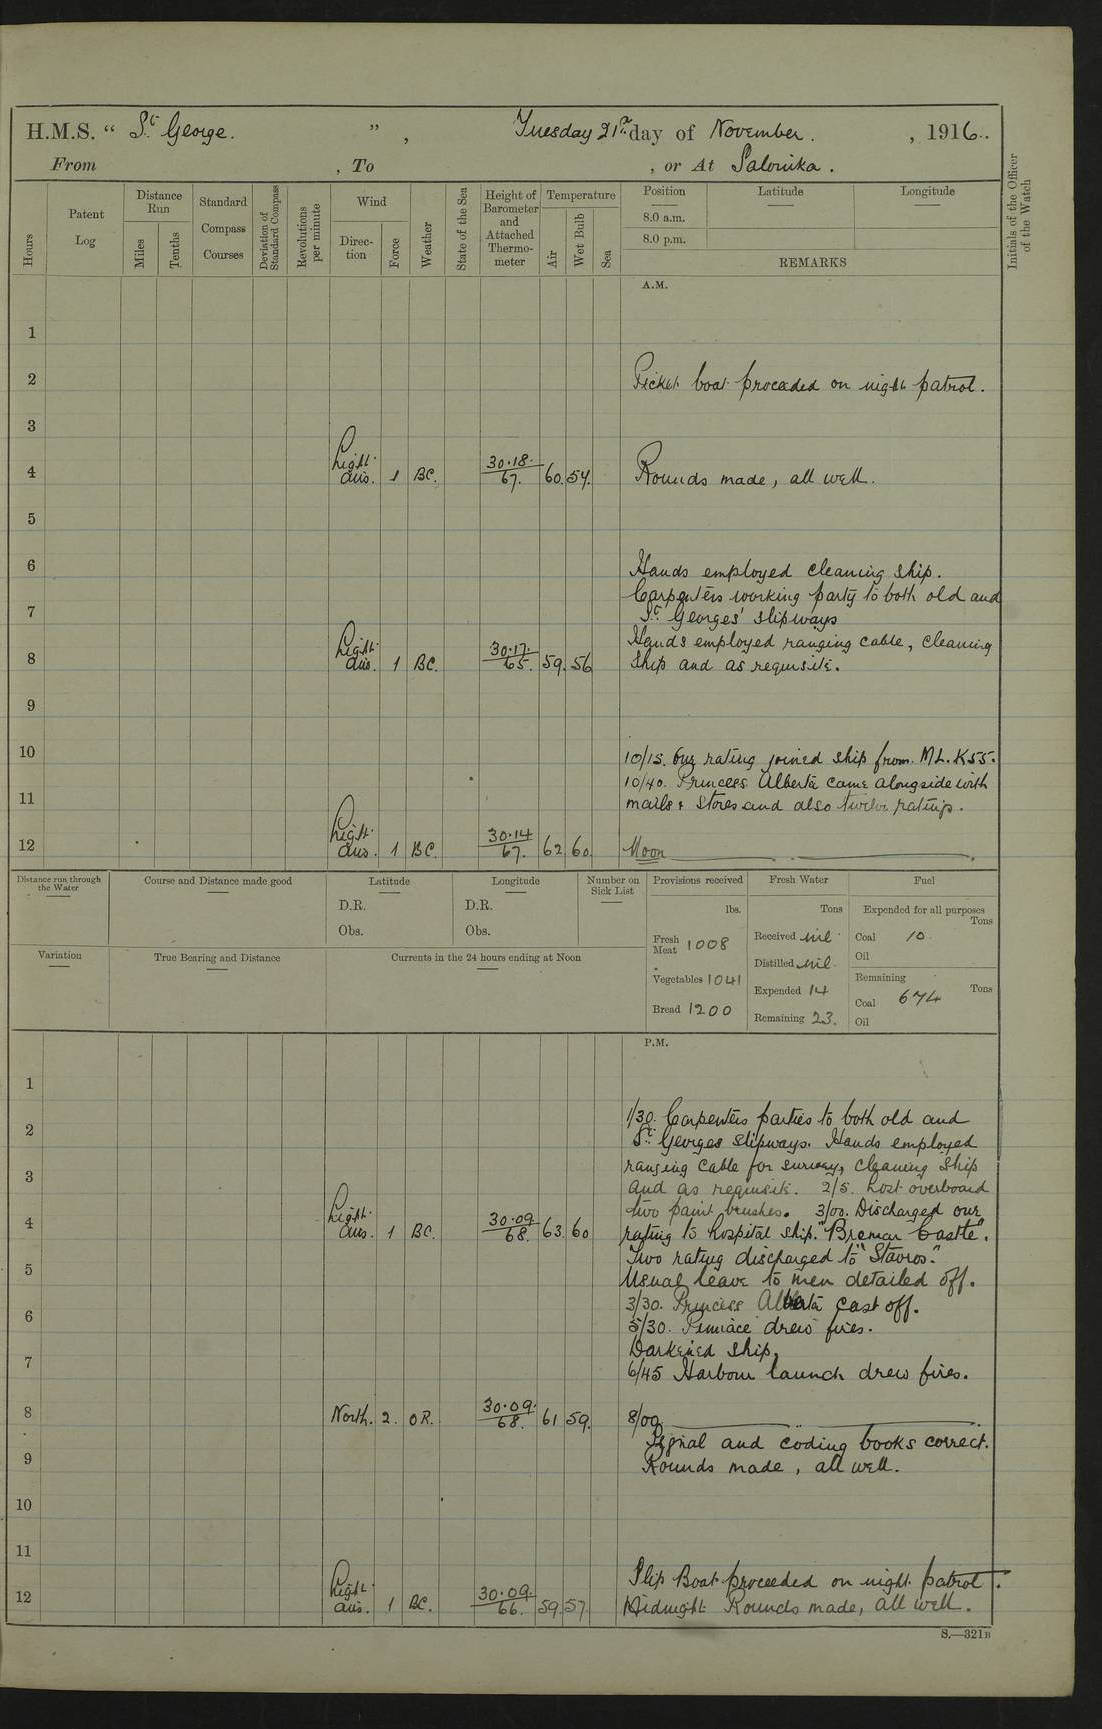 H.M.S. “ St George. ”, Tuesday 21st day of November. , 1916.
From , To , or At Salonika.
Hours
Patent Log
Distance Run
Miles
Tenths
Standard Compass Courses
Deviation of Standard Compass
Revolutions per minute
Wind
Direction
Force
Weather
State of the Sea
Height of Barometer and Attached Thermometer
Temperature
Air
Wet Bulb
Sea
Position
Latitude
Longitude
8.0 a.m.
8.0 p.m.
REMARKS
Initials of the Officer of the Watch
A.M.
1
2 Picket boat proceeded on night patrol.
3
4 Light airs. 1 BC. 30.18. 67. 60. 54. Rounds made, all well.
5
6 Hands employed cleaning ship.
Carpenters working party to both old and
7 St Georges' slipways
Hands employed ranging cable, cleaning
8 Light airs. 1 BC. 30.17. 65. 59. 56 ship and as requisite.
9
10 10/15. One rating joined ship from M.L. K55.
10/40. Princess Alberta came alongside with
11 mails & stores and also twelve ratings.
12 Light airs. 1 BC. 30.14 67. 62. 60. Noon
Distance run through the Water
Course and Distance made good
Latitude
D.R.
Obs.
Longitude
D.R.
Obs.
Number on Sick List
Provisions received
lbs.
Fresh Meat 1008
Vegetables 1041
Bread 1200
Fresh Water
Tons
Received nil
Distilled nil
Expended 14
Remaining 23.
Fuel
Expended for all purposes
Tons
Coal 10
Oil
Remaining
Tons
Coal 674
Oil
Variation
True Bearing and Distance
Currents in the 24 hours ending at Noon
P.M.
1
1/30. Carpenters parties to both old and
2 St Georges slipways. Hands employed
3 ranging cable for survey, cleaning ship
and as requisite. 2/5. Lost overboard
two paint brushes. 3/00. Discharged one
4 Light airs. 1 BC. 30.09 68. 63. 60 rating to hospital ship "Bremar Castle".
Two rating discharged to "Stavros."
5 Usual leave to men detailed off.
3/30. Princess Alberta cast off.
6 5/30. Pinnace drew fires.
Darkened ship.
7 6/45 Harbour launch drew fires.
8 North. 2. OR. 30.09. 68. 61 59. 8/00
Signal and coding books correct.
9 Rounds made, all well.
10
11
Slip Boat proceeded on night patrol.
12 Light airs. 1 BC. 30.09. 66. 59. 57. Midnight Rounds made, all well.
S.—321B